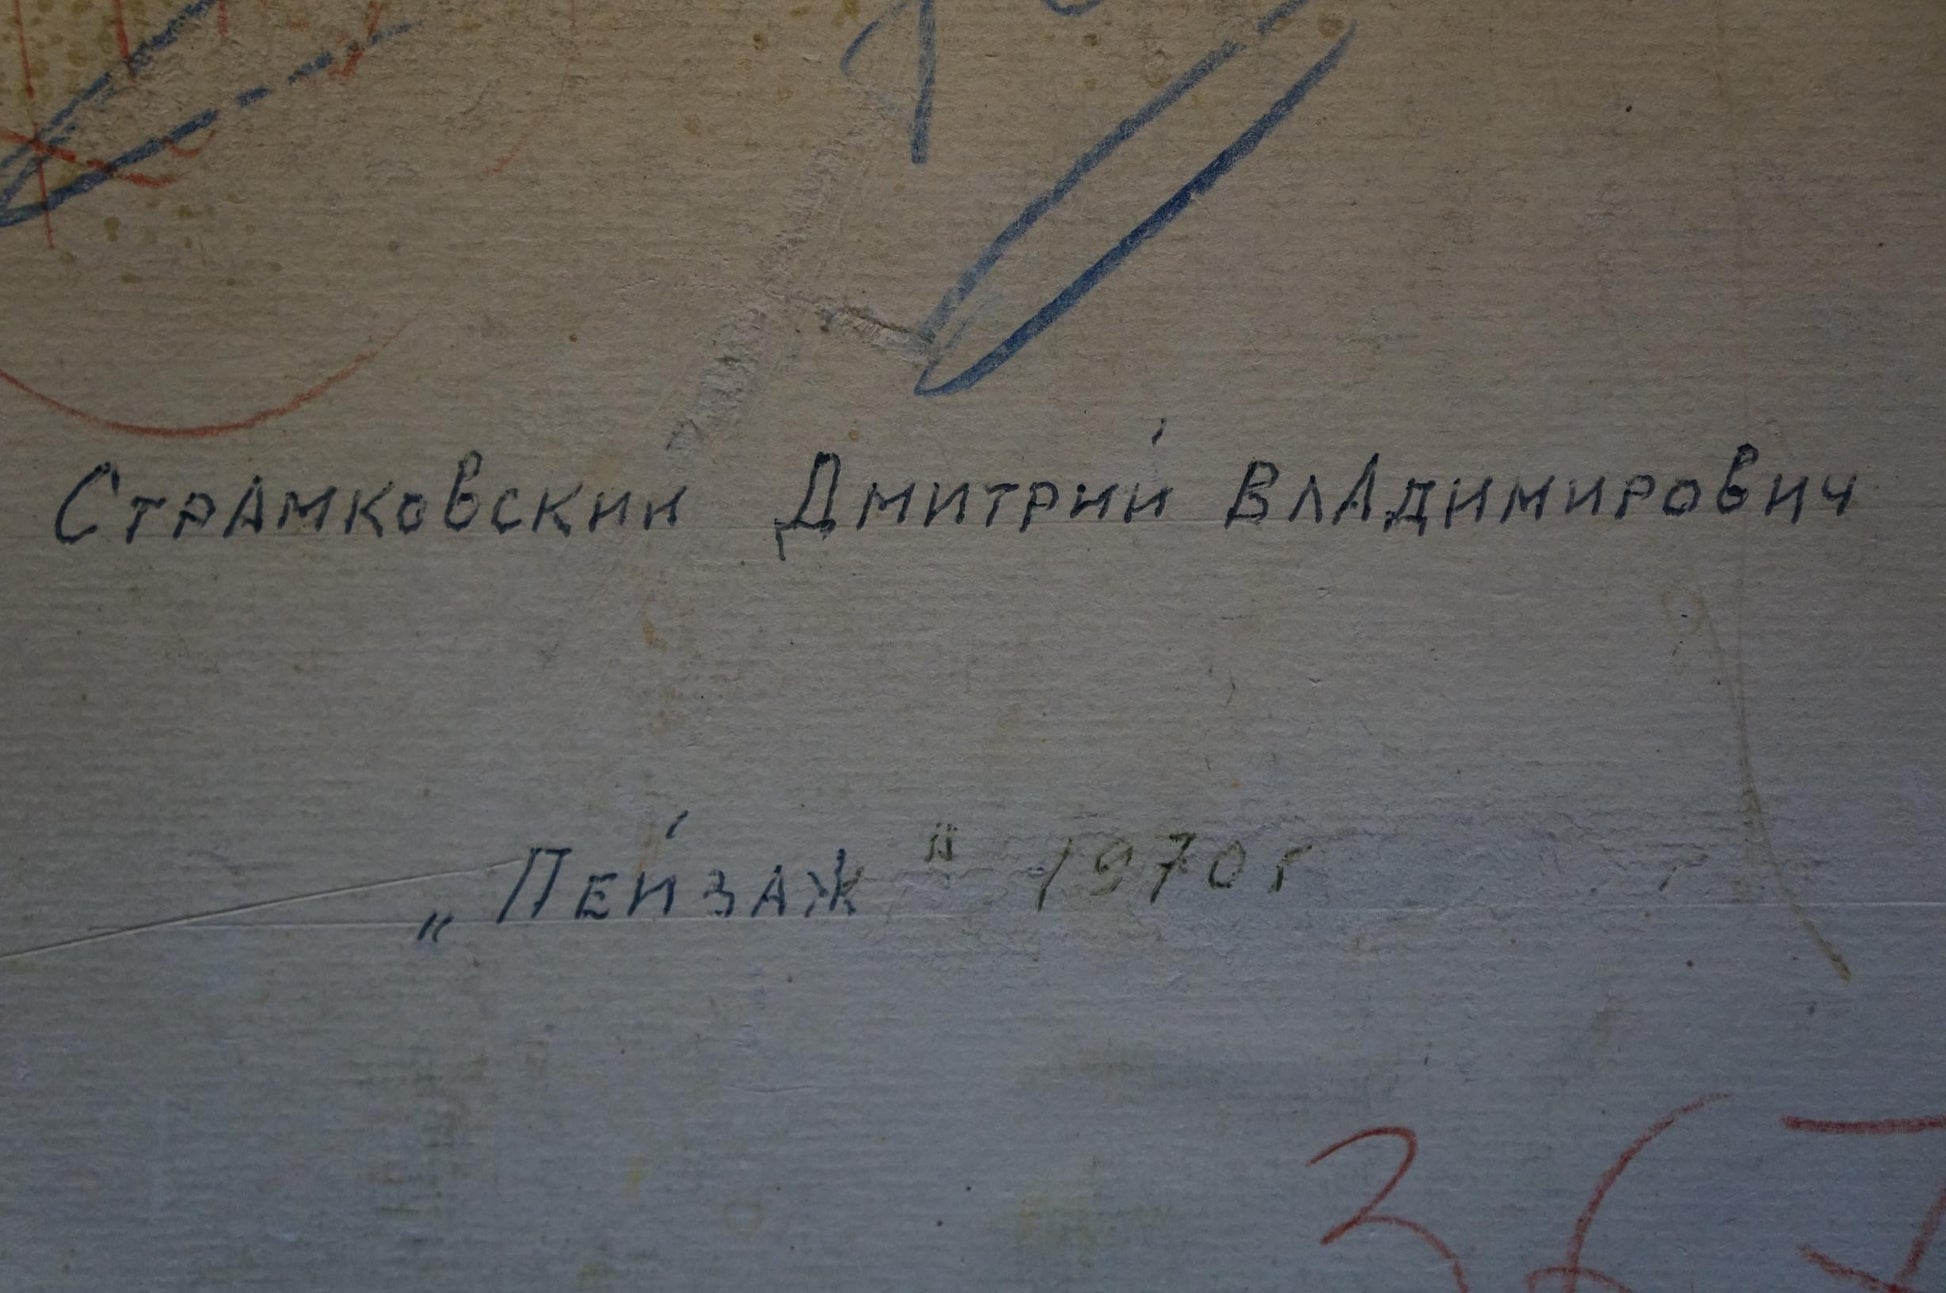 Страмковскии Дмитрий Владимирович
„Пейзаж" 1970г